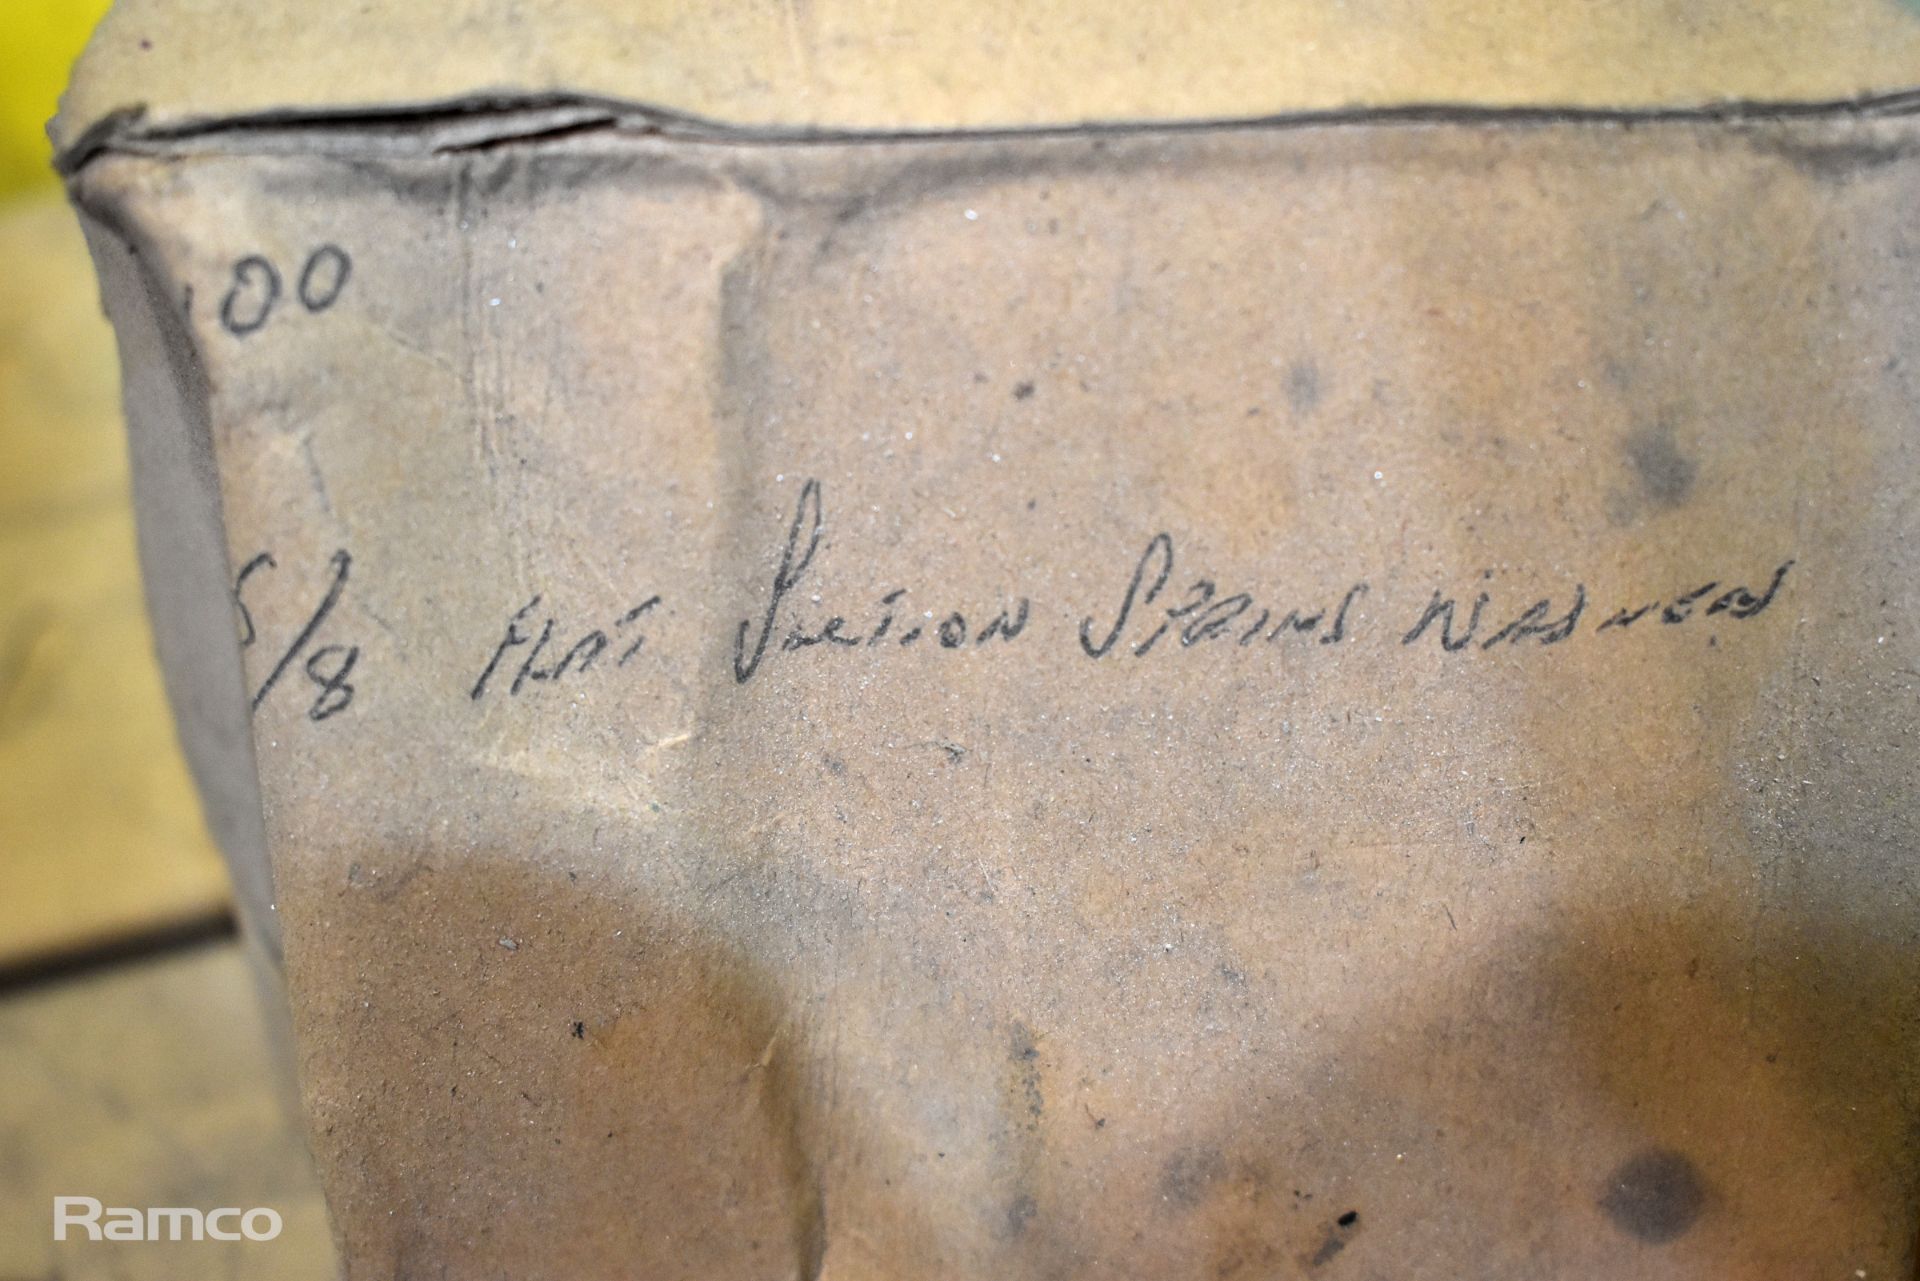 100
5/8 FLAT SECTION SPRING WASHERS
Ramco